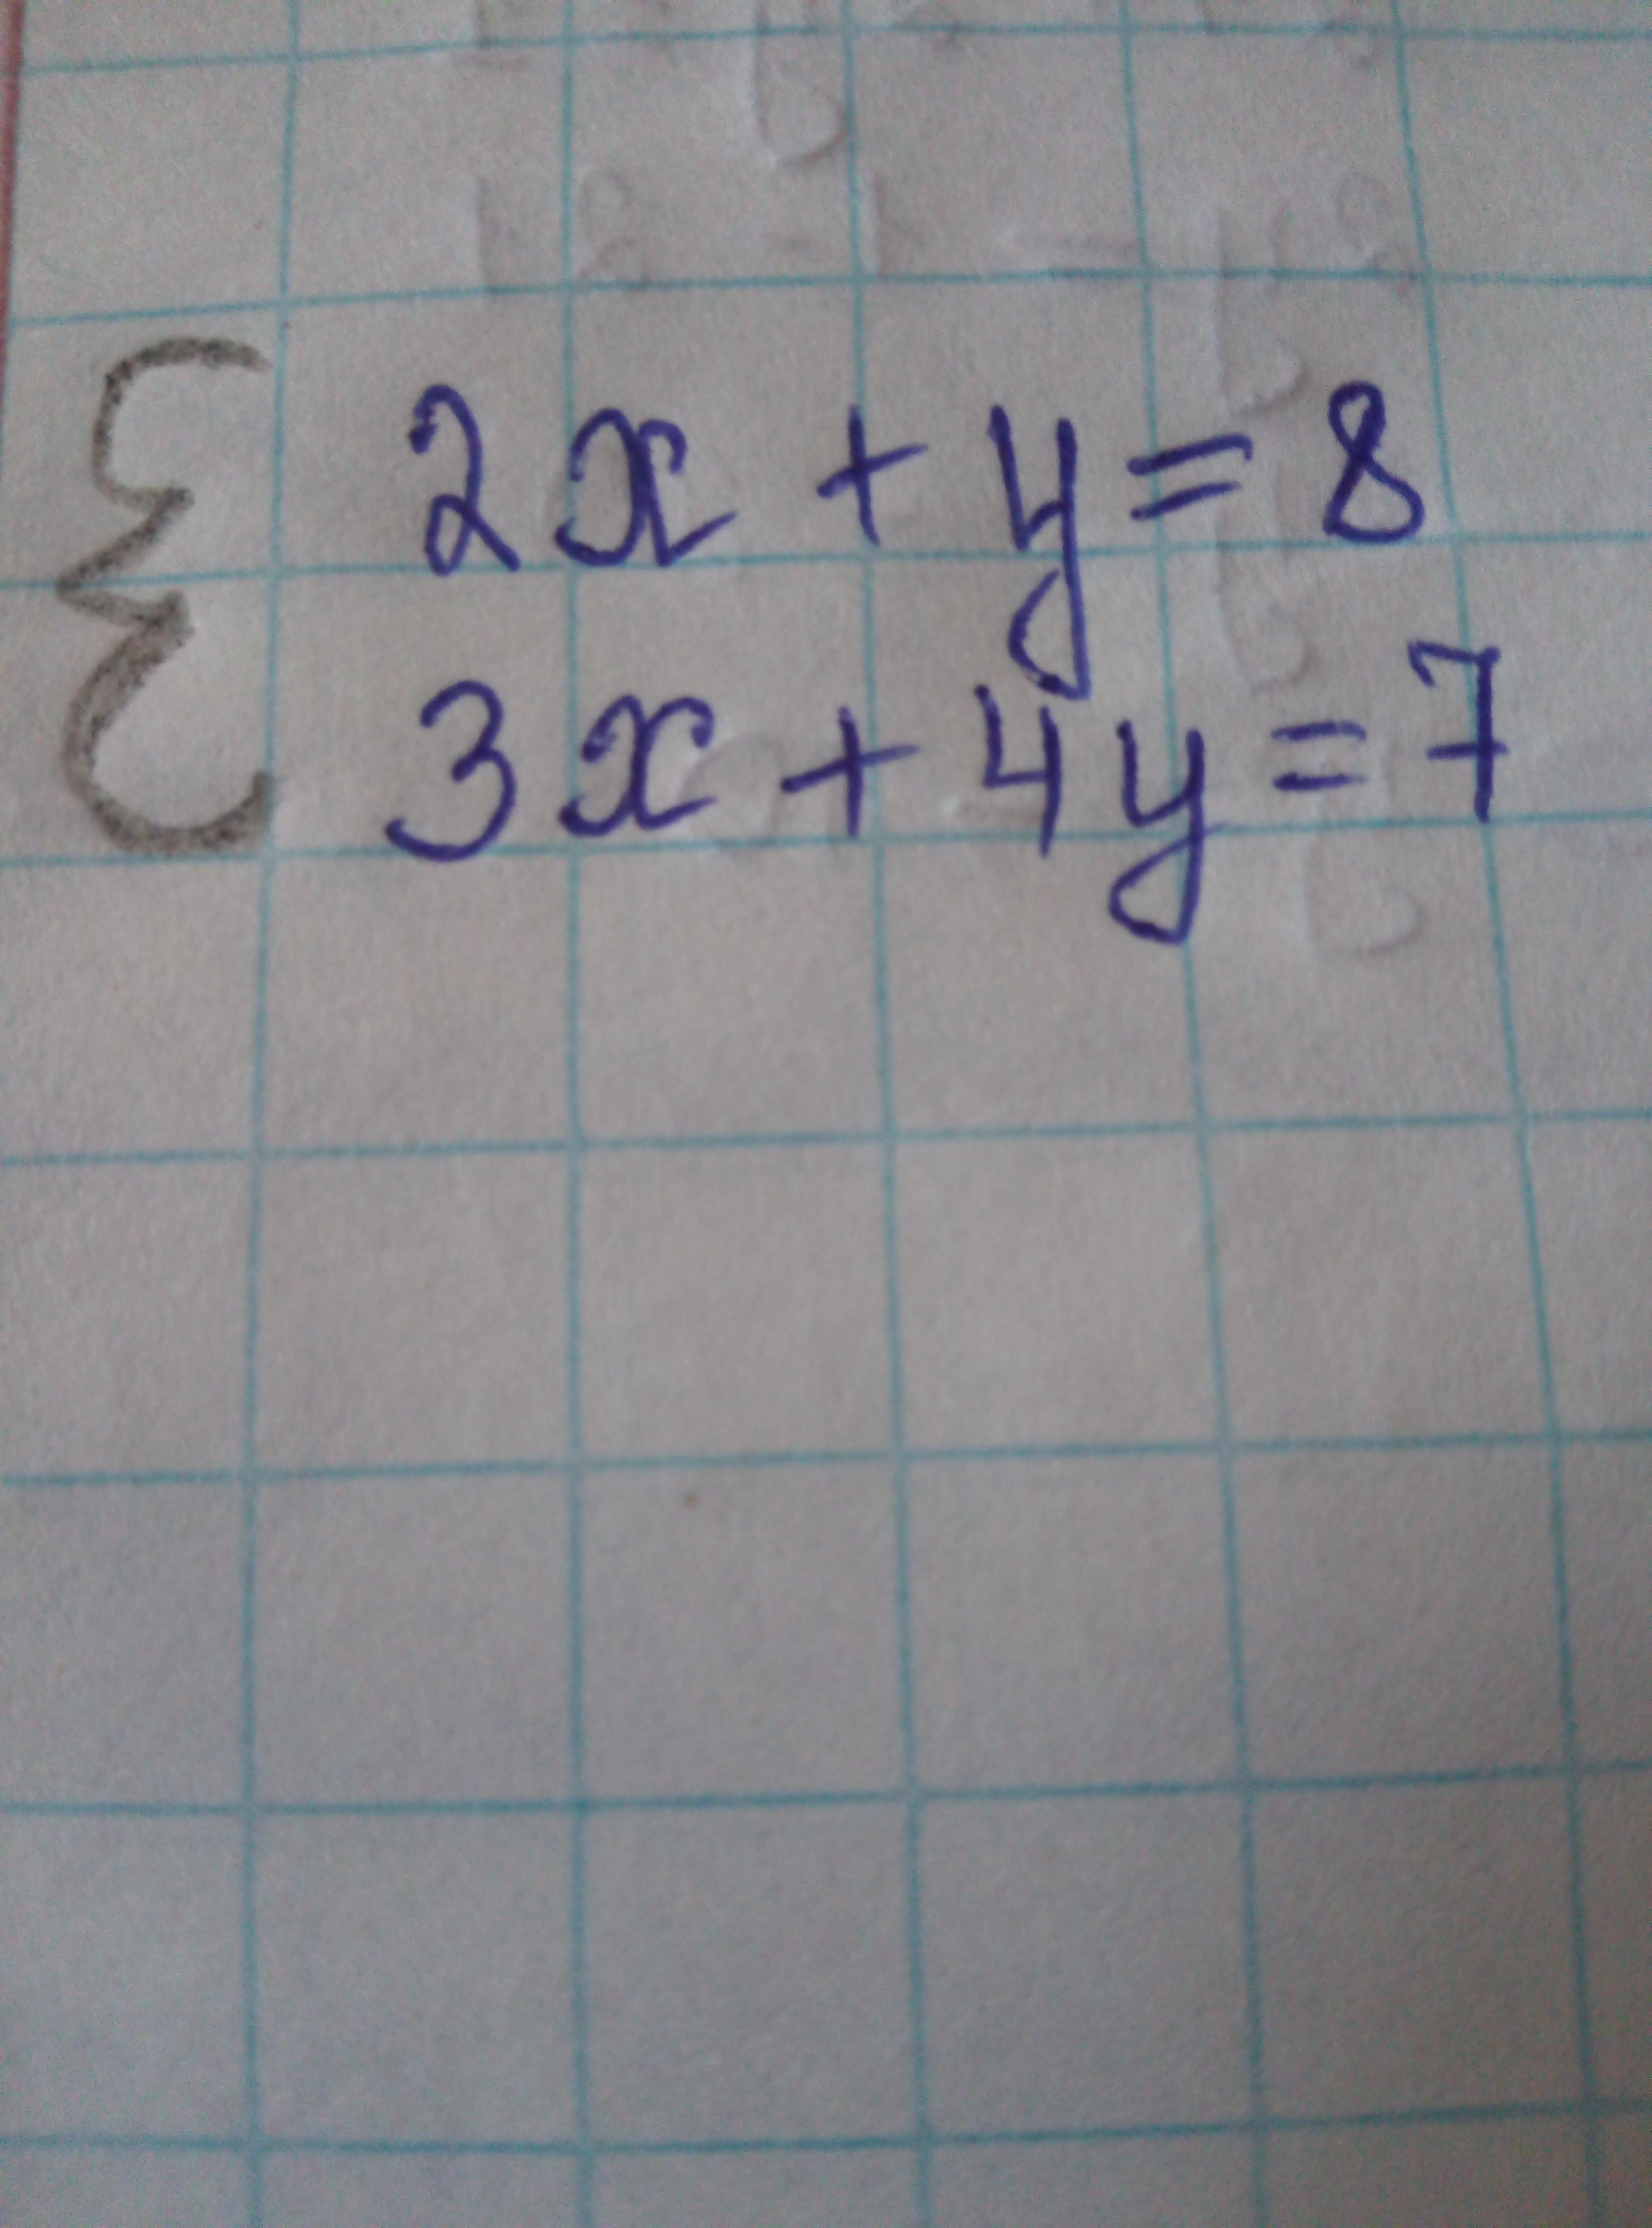 2x + y = 8
3x + 4y = 7